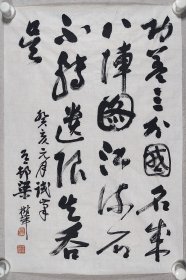 功盖三分國名成
八陣圖江流石
不轉遺恨失吞
吴
癸亥元月試筆
梁